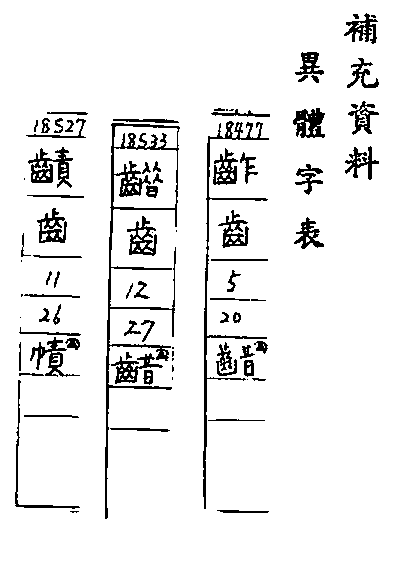 補充資料
異體字表
18477
齚
齒
5
20
齰
18533
齒
12
27
齰
18527
䶦
齒
11
26
幘